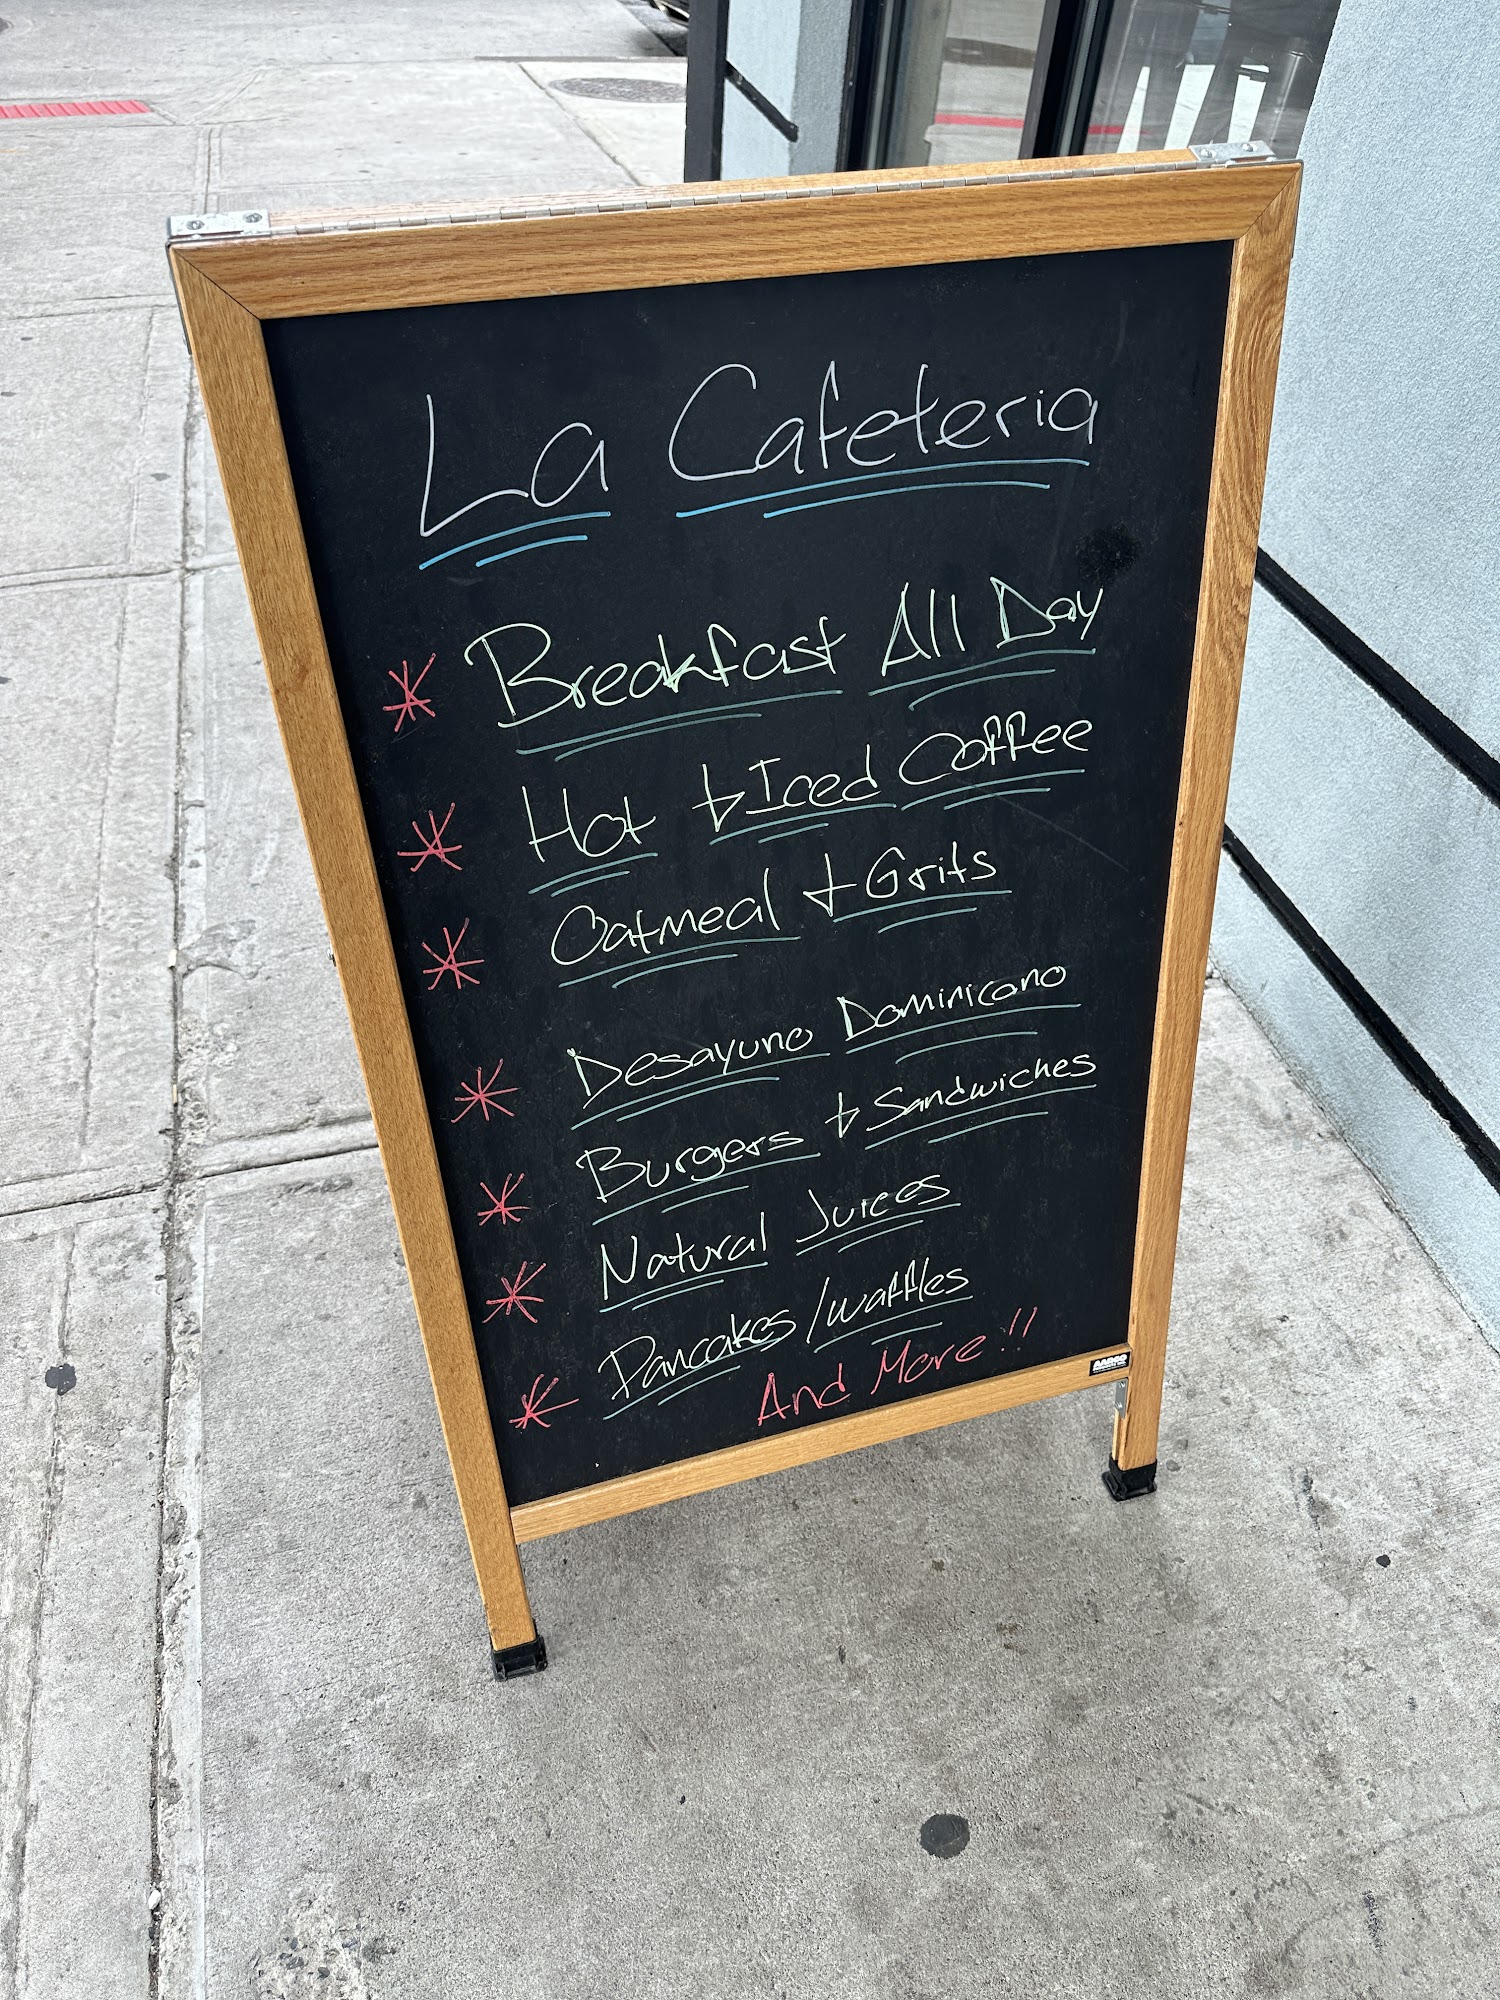 La Cafeteria
* Breakfast All Day
* Hot + Iced Coffee
* Oatmeal + Grits
* Desayuno Dominicano
* Burgers + Sandwiches
* Natural Juices
* Pancakes/waffles
And More!!
AARCO